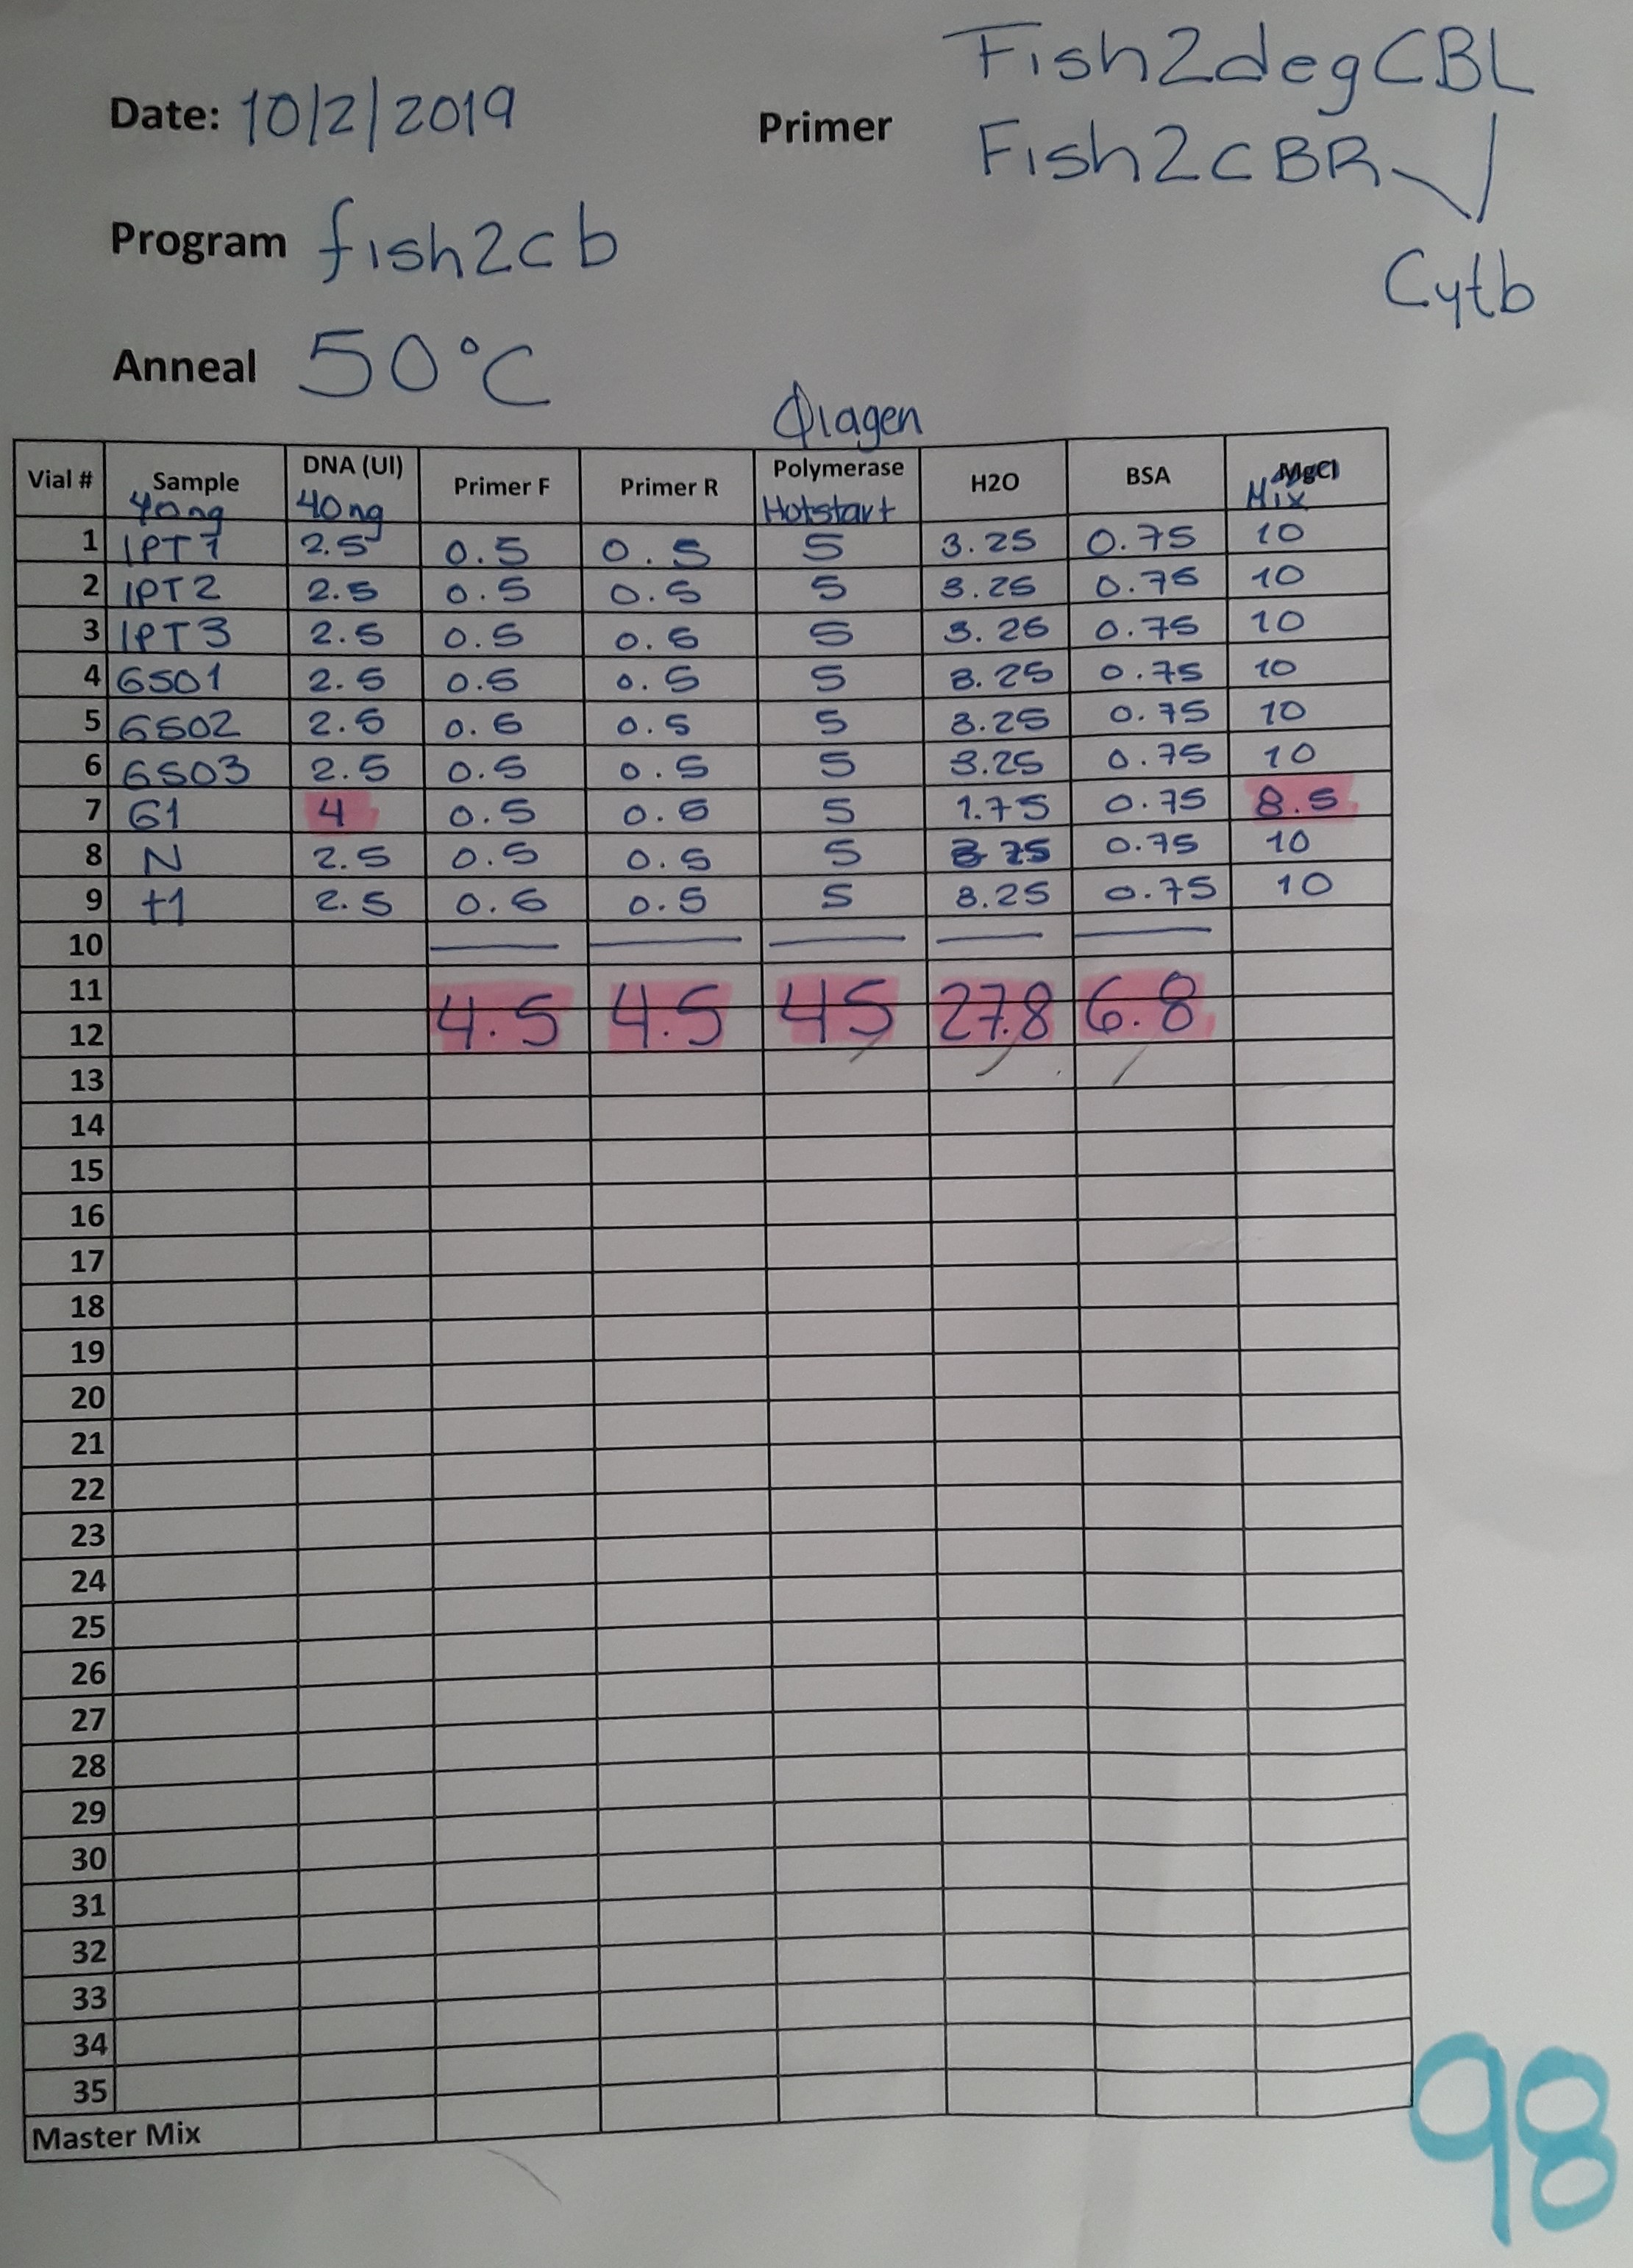 Fish2degCBL
Date: 10/2/2019 Primer Fish2CBR
Program fish2cb
Cytb
Anneal 50°C
Qiagen
Vial # Sample 40ng DNA (Ul) 40ng Primer F Primer R Polymerase Hotstart H2O BSA MgCl Mix
1 IPT1 2.5 0.5 0.5 5 3.25 0.75 10
2 IPT2 2.5 0.5 0.5 5 3.25 0.75 10
3 IPT3 2.5 0.5 0.5 5 3.25 0.75 10
4 GSO1 2.5 0.5 0.5 5 3.25 0.75 10
5 GSO2 2.5 0.5 0.5 5 3.25 0.75 10
6 GSO3 2.5 0.5 0.5 5 3.25 0.75 10
7 G1 4 0.5 0.5 5 1.75 0.75 8.5
8 N 2.5 0.5 0.5 5 0.75 10
9 +1 2.5 0.5 0.5 5 3.25 0.75 10
10
11
4.5 4.5 45 27.8 6.8
12
13
14
15
16
17
18
19
20
21
22
23
24
25
26
27
28
29
30
31
32
33
34
35
Master Mix
98